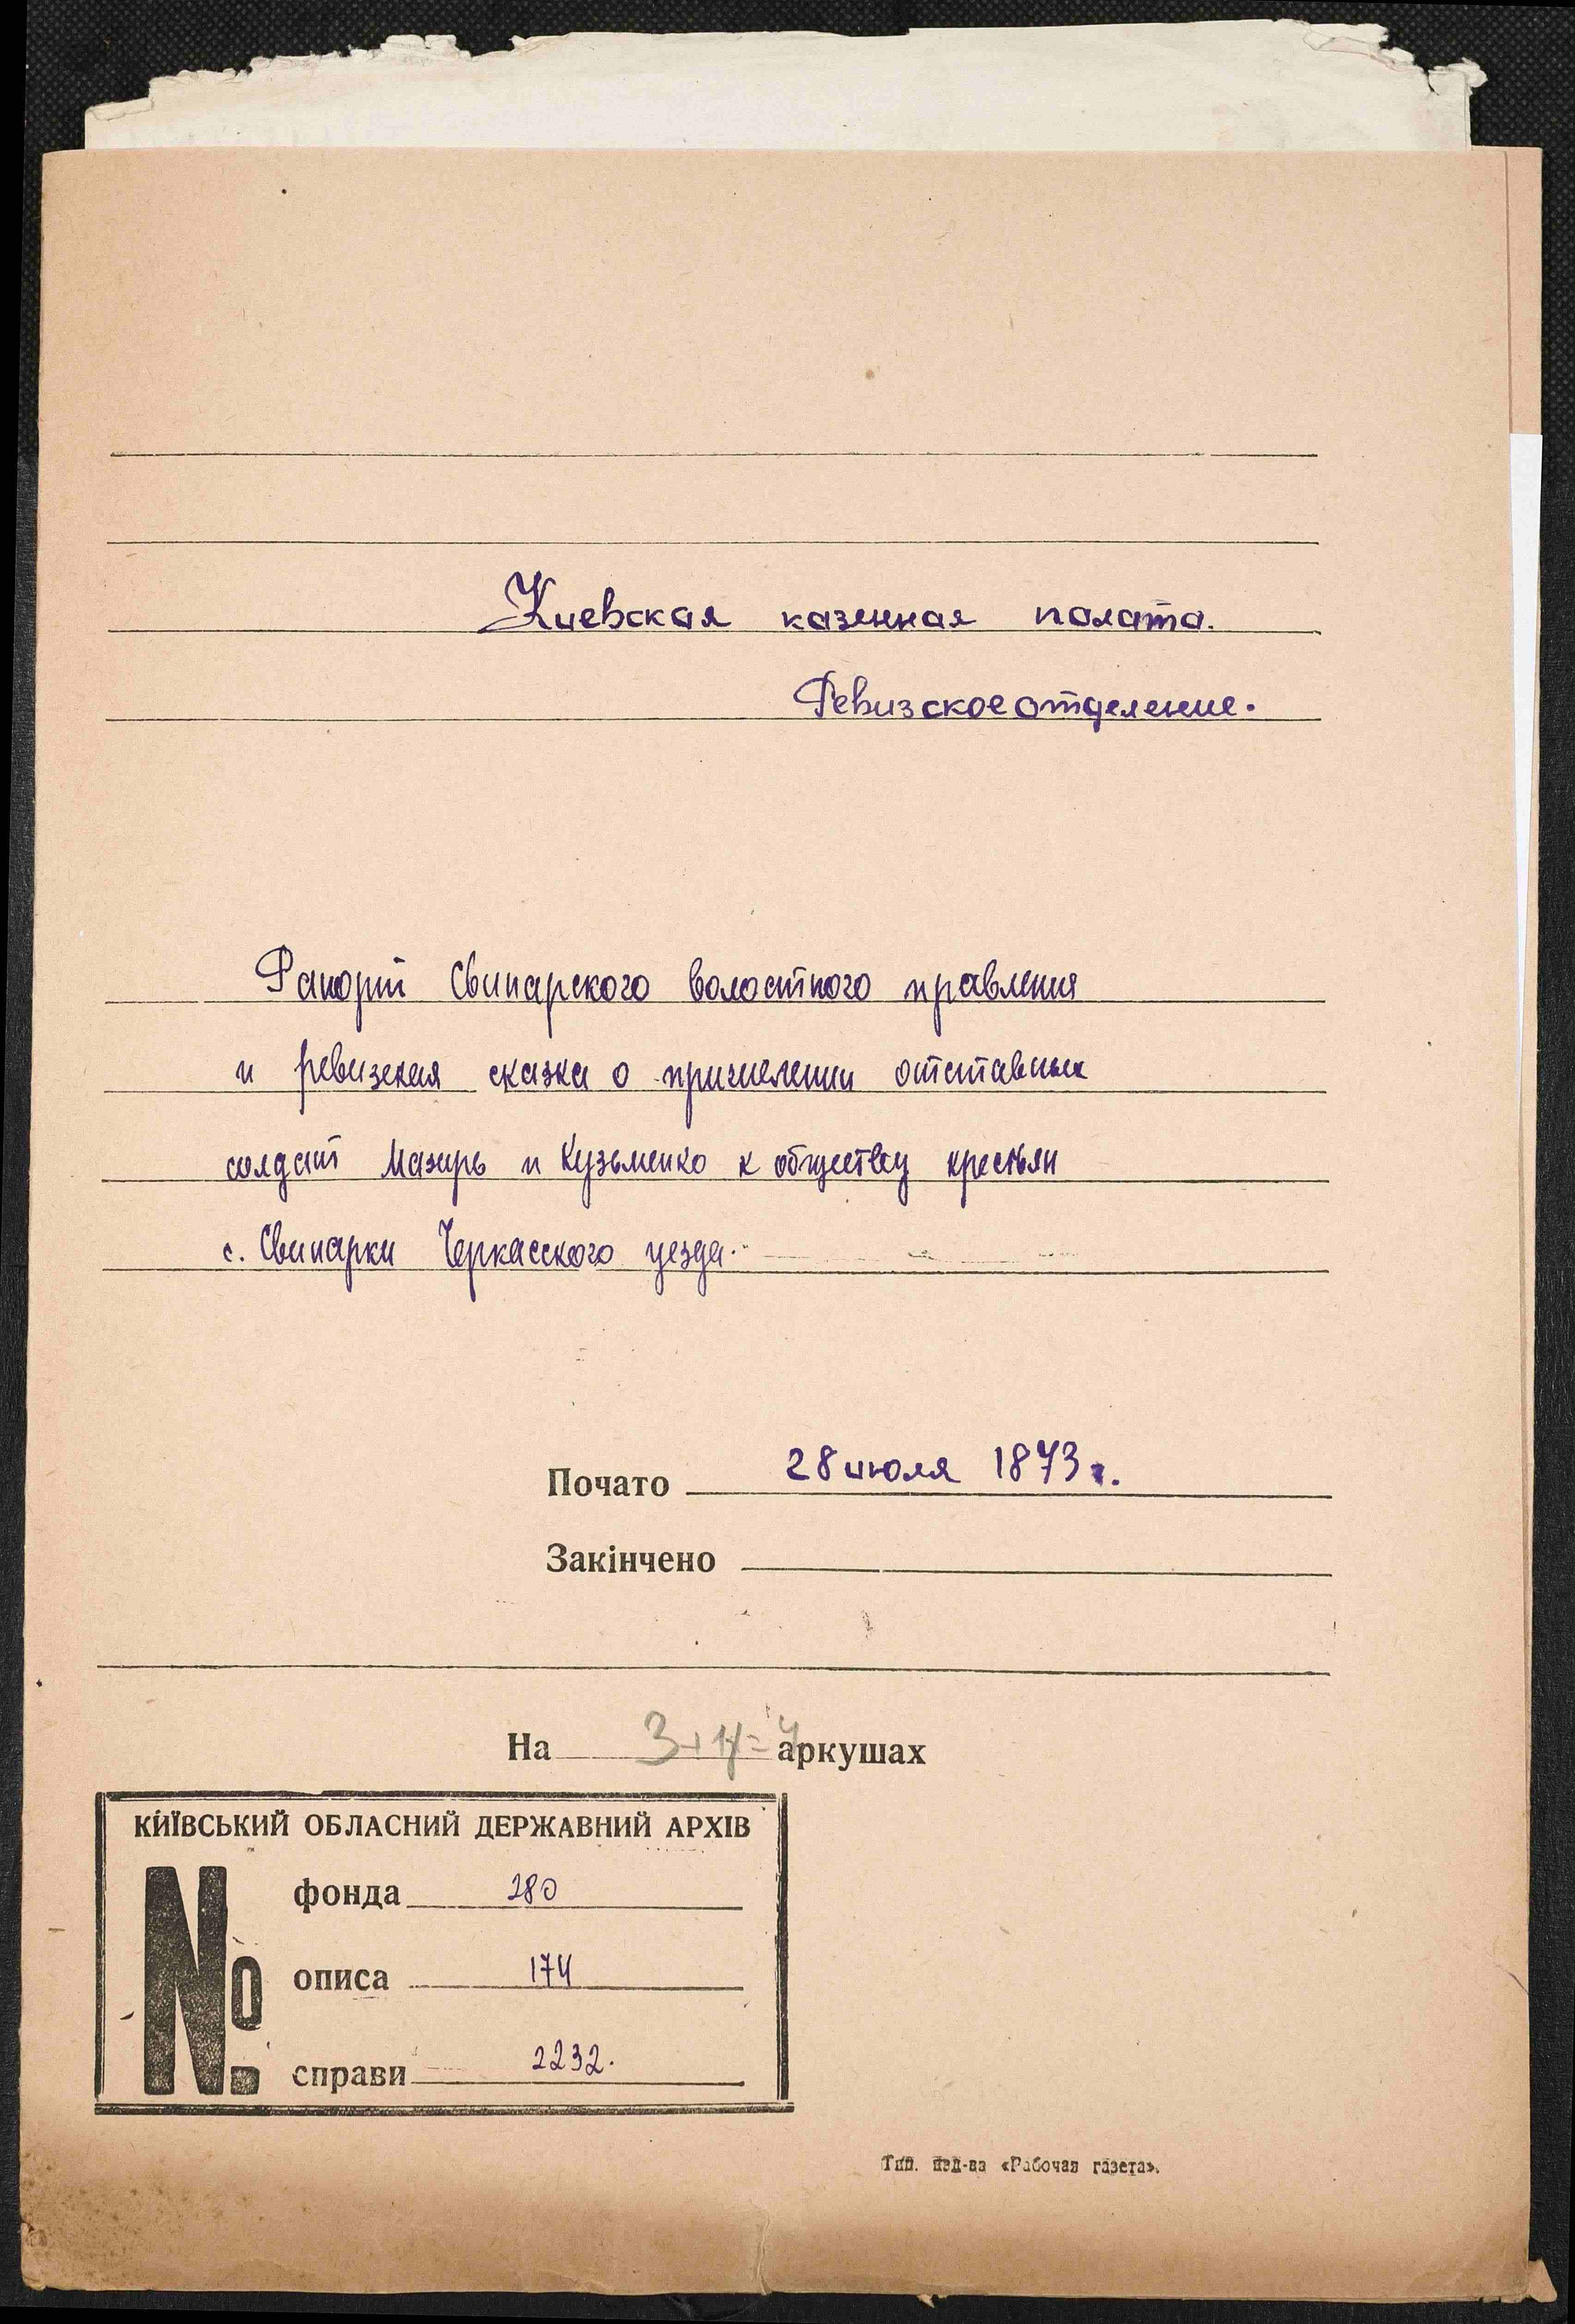 Киевская казенная палата.
Ревизское отделение.
Рапорт Свинарского волостного правления
и ревизская сказка о причислении отставных
солдат Мазирь и Кузьменко к обществу крестьян
с. Свинарки Черкасского уезда.
Почато 28 июля 1873 г.
Закінчено
На 3+1=4 аркушах
КИЇВСЬКИЙ ОБЛАСНИЙ ДЕРЖАВНИЙ АРХІВ
№
фонда 280
описа 174
справи 2232.
Тип. изд-ва «Рабочая газета».